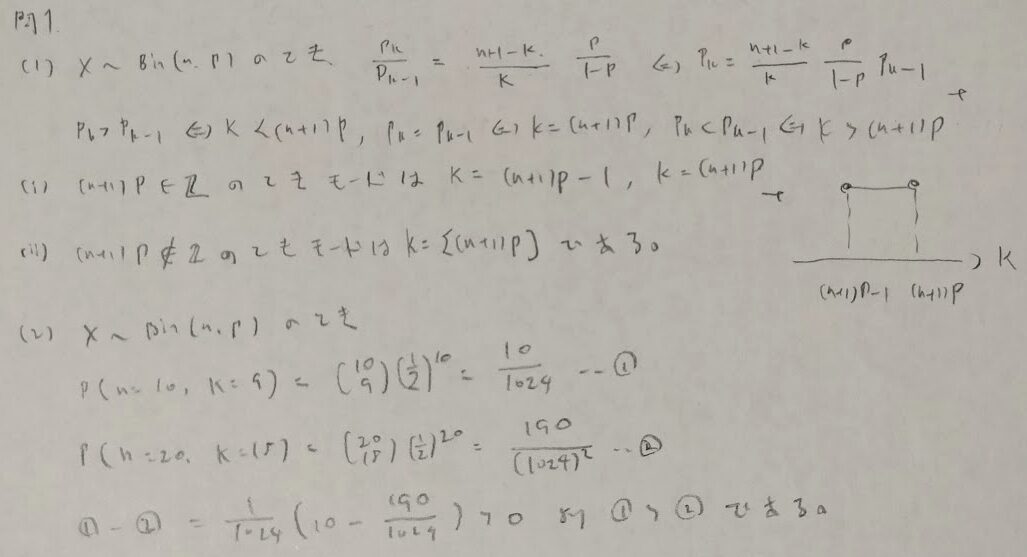 問1.
(1) X ~ Bin(n.p) のとき. P_k/P_{k-1} = (n+1-k)/k · p/(1-p) ⇔ P_k = (n+1-k)/k · p/(1-p) P_{k-1}
P_k > P_{k-1} ⇔ k < (n+1)p, P_k = P_{k-1} ⇔ k = (n+1)p, P_k < P_{k-1} ⇔ k > (n+1)p
(i) (n+1)p ∈ ℤ のとき モードは k = (n+1)p - 1, k = (n+1)p
(ii) (n+1)p ∉ ℤ のとき モードは k = [(n+1)p] である。
k
(n+1)p-1 (n+1)p
(2) X ~ Bin(n.p) のとき
P(n=10, k=9) = (10 9)(1/2)^10 = 10/1024 -- ①
P(n=20, k=18) = (20 18)(1/2)^20 = 190/(1024)^2 -- ②
① - ② = 1/1024 (10 - 190/1024) > 0 より ① > ② である。